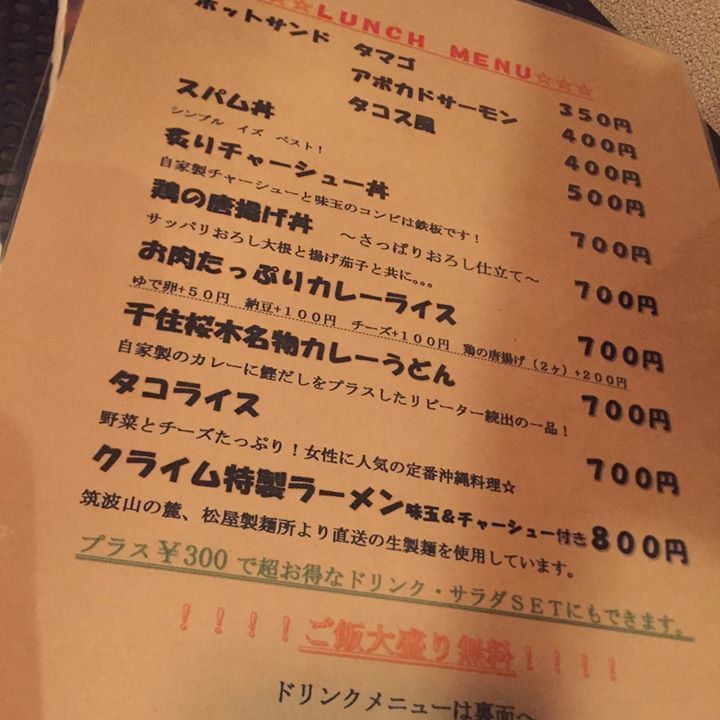 ☆☆LUNCH MENU☆☆☆
ホットサンド タマゴ 350円
アボカドサーモン 400円
タコス風 400円
スパム丼 500円
シンプル イズ ベスト！
炙りチャーシュー丼 700円
自家製チャーシューと味玉のコンビは鉄板です！
鶏の唐揚げ丼 ～さっぱりおろし仕立て～ 700円
サッパリおろし大根と揚げ茄子と共に。。。
お肉たっぷりカレーライス 700円
ゆで卵+50円 納豆+100円 チーズ+100円 鶏の唐揚げ（2ヶ）+200円
千住桜木名物カレーうどん 700円
自家製のカレーに鰹だしをプラスしたリピーター続出の一品！
タコライス 700円
野菜とチーズたっぷり！女性に人気の定番沖縄料理☆
クライム特製ラーメン味玉&チャーシュー付き 800円
筑波山の麓、松屋製麺所より直送の生製麺を使用しています。
プラス￥300で超お得なドリンク・サラダSETにもできます。
！！！！ご飯大盛り無料！！！！
ドリンクメニューは裏面へ